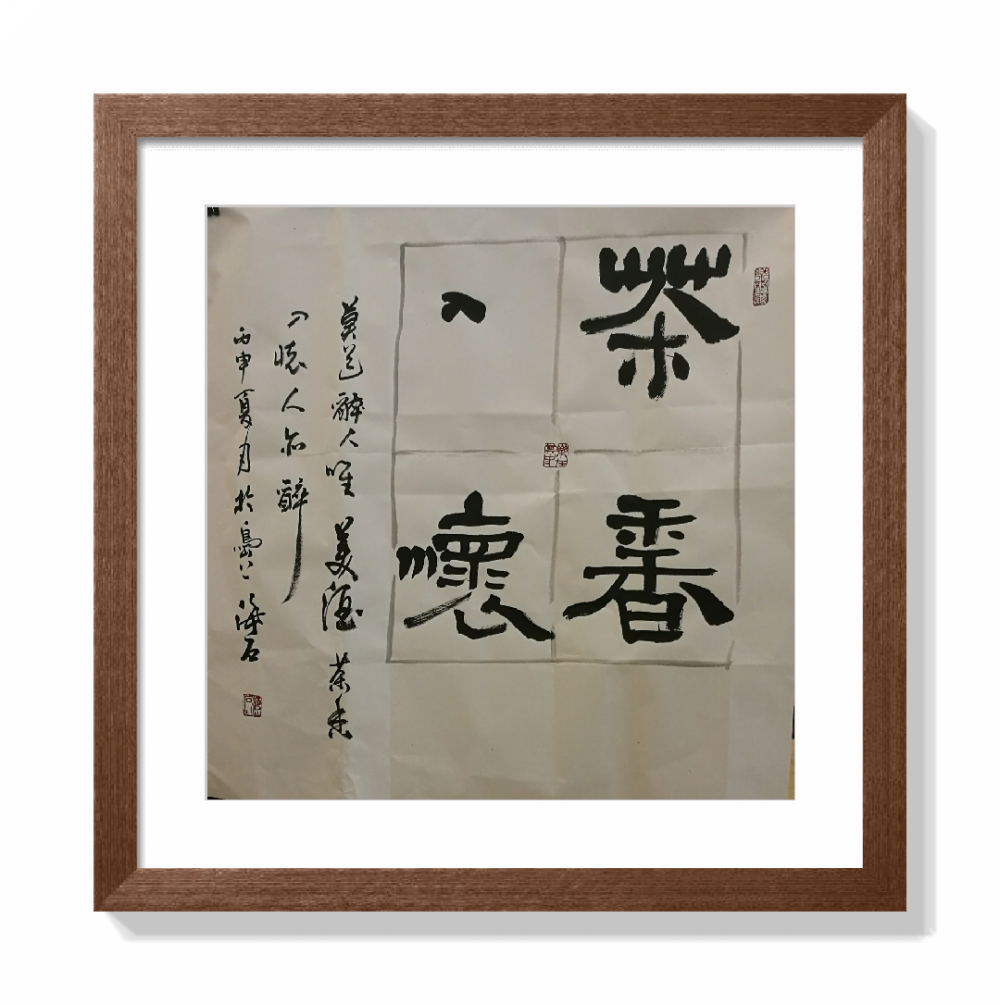 茶香
入懷
莫道醉人唯美酒茶香
入懷人亦醉
丙申夏月於島上海石